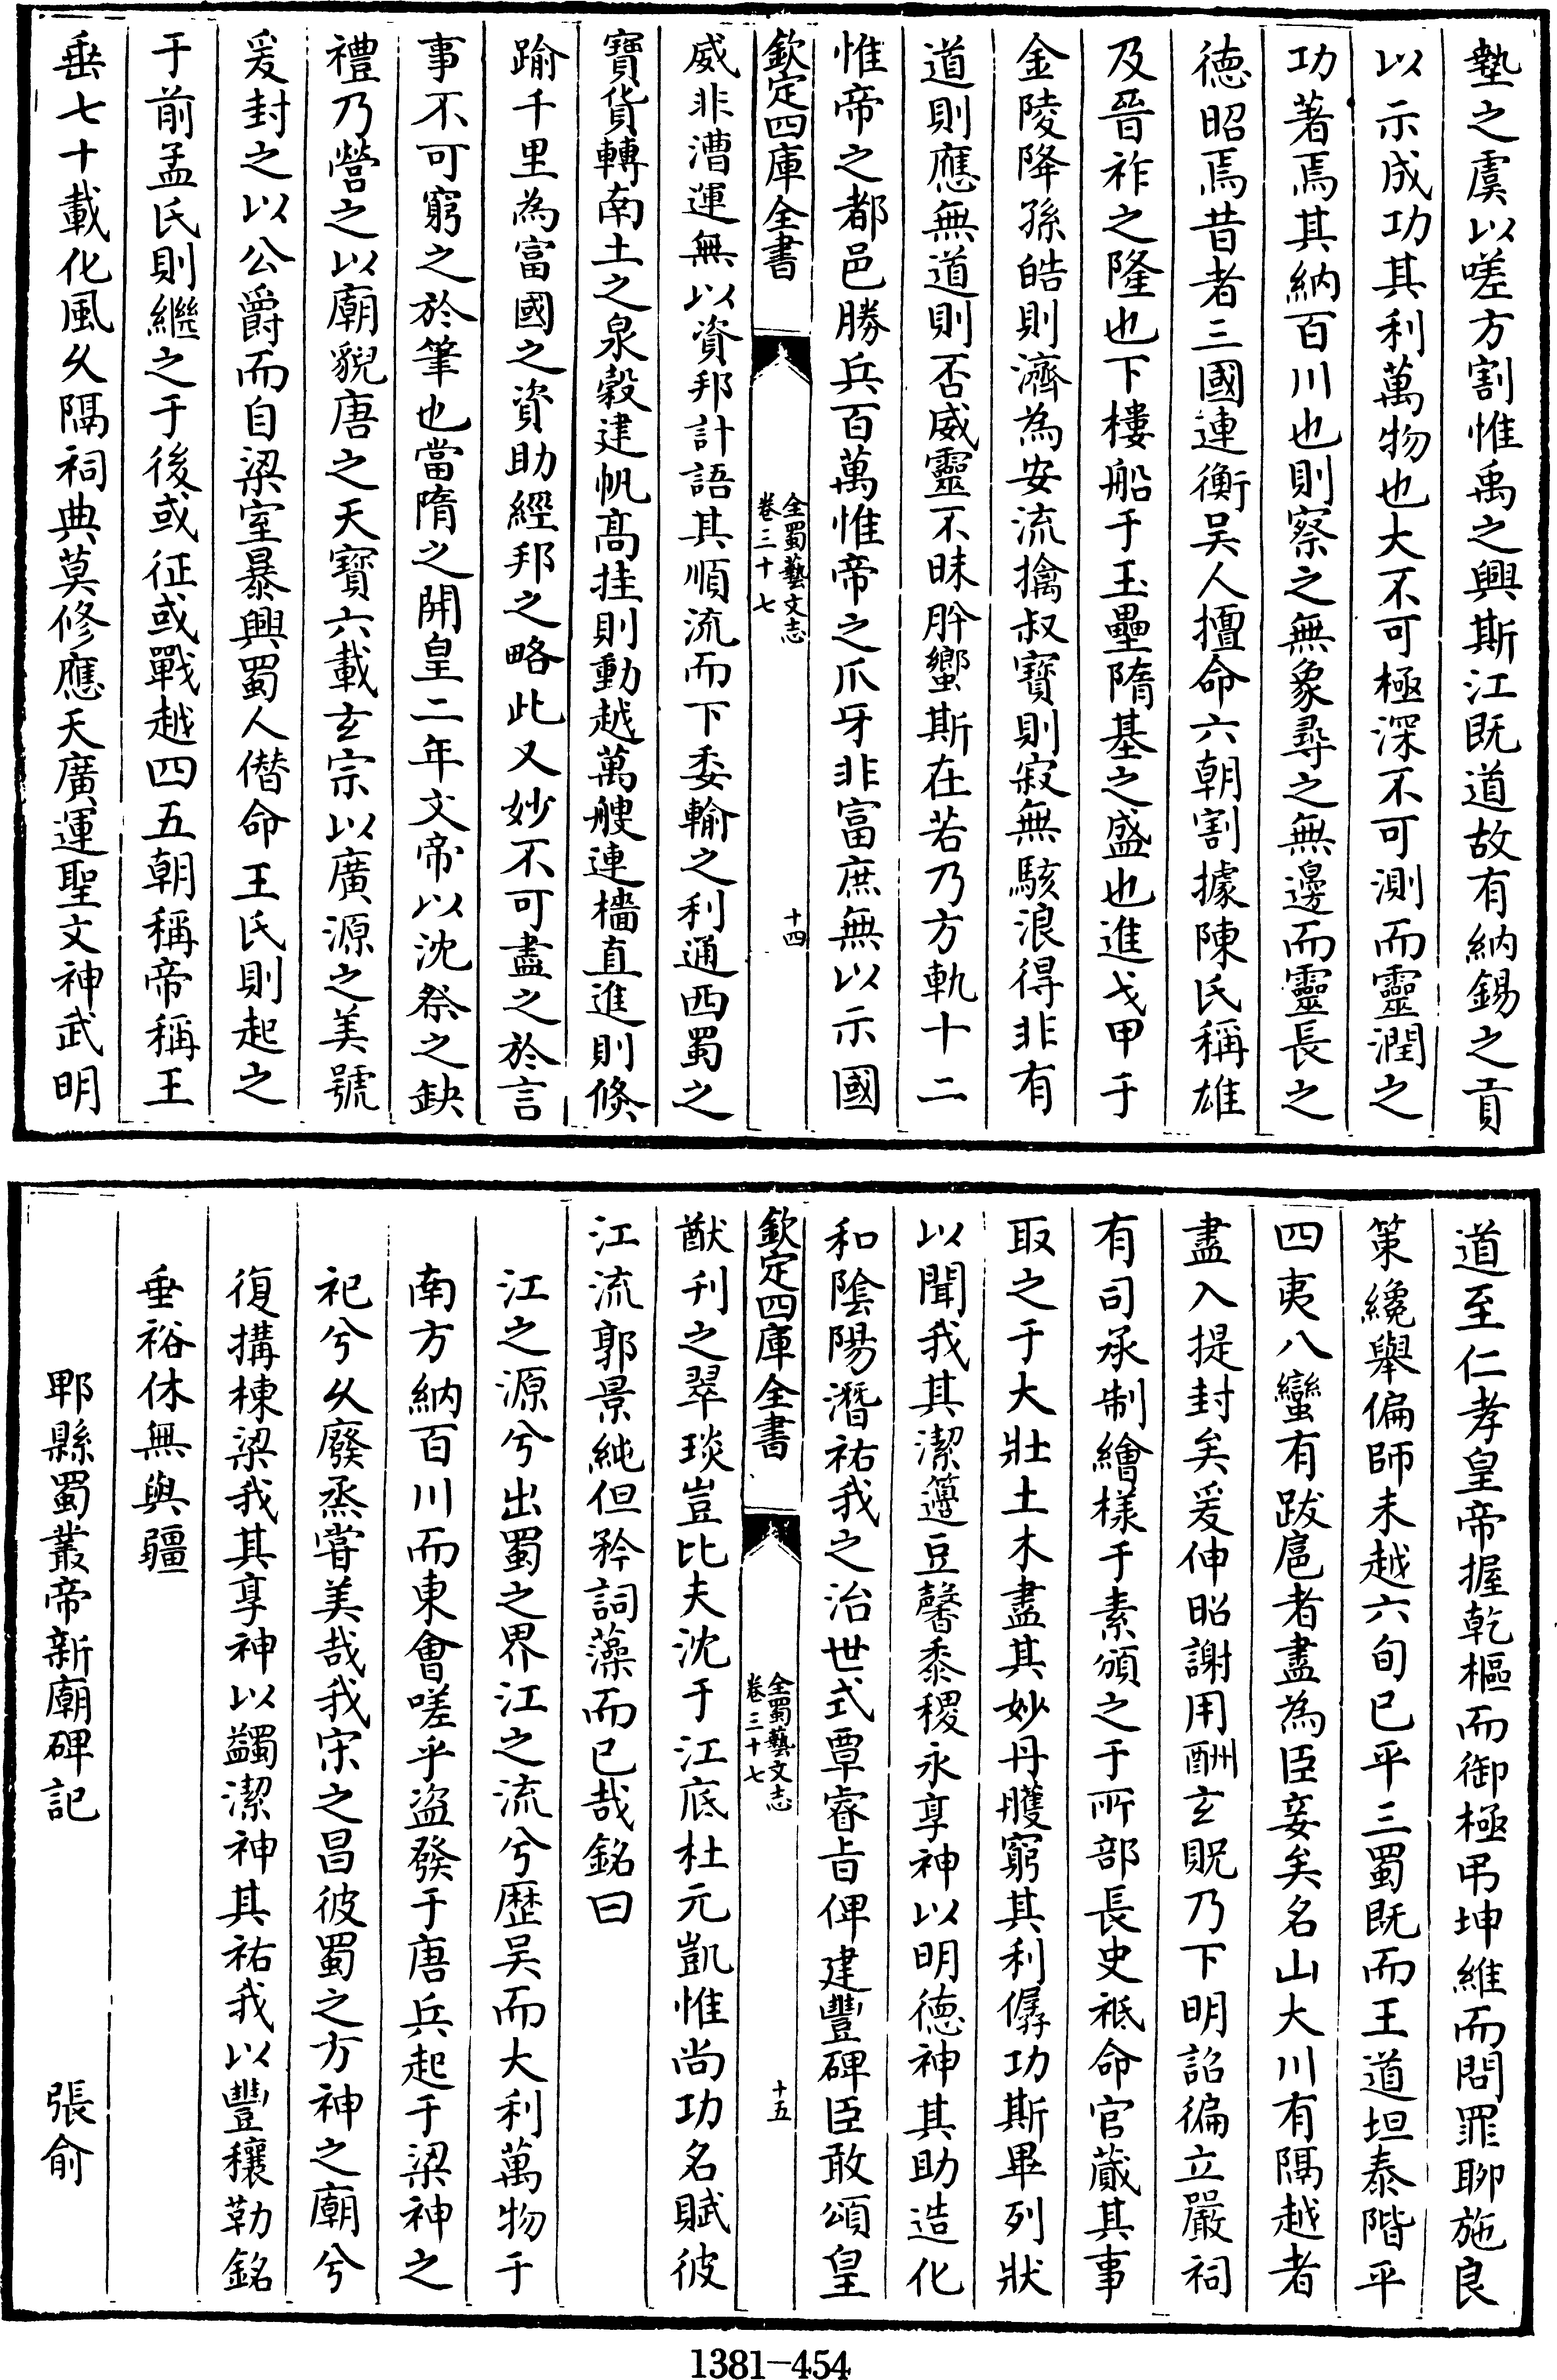 墊之虞以嗟方割惟禹之興斯江既道故有納錫之貢
以示成功其利萬物也大不可極深不可測而靈潤之
功著焉其納百川也則察之無象尋之無邊而靈長之
德昭焉昔者三國連衡吴人擅命六朝割據陳氏稱雄
及晉祚之隆也下樓船于玉壘隋基之盛也進戈甲于
金陵降孫皓則濟為安流擒叔寶則寂無駭浪得非有
道則應無道則否威靈不昧肸蠁斯在若乃方軌十二
惟帝之都邑勝兵百萬惟帝之爪牙非富庶無以示國
欽定四庫全書
全蜀藝文志
卷三十七
十四
威非漕運無以資邦計語其順流而下委輸之利通西蜀之
寶貨轉南土之泉穀建帆高挂則動越萬艘連檣直進則倏
踰千里為富國之資助經邦之略此又妙不可盡之於言
事不可窮之於筆也當隋之開皇二年文帝以沈祭之缺
禮乃營之以廟貌唐之天寳六載玄宗以廣源之美號
爰封之以公爵而自梁室暴興蜀人僭命王氏則起之
于前孟氏則繼之于後或征或戰越四五朝稱帝稱王
垂七十載化風久隔祠典莫修應天廣運聖文神武明
道至仁孝皇帝握乾樞而御極弔坤維而問罪聊施良
策纔舉偏師未越六旬已平三蜀既而王道坦泰階平
四夷八蠻有跋扈者盡為臣妾矣名山大川有隔越者
盡入提封矣爰伸昭謝用酬玄貺乃下明詔徧立嚴祠
有司承制繪樣于素頒之于所部長史祗命官蕆其事
取之于大壯土木盡其妙丹雘窮其利僝功斯畢列狀
以聞我其潔籩豆馨黍稷永享神以明德神其助造化
和陰陽潛祐我之治世式覃睿旨俾建豐碑臣敢頌皇
欽定四庫全書
全蜀藝文志
卷三十七
十五
猷刋之翠琰豈比夫沈于江底杜元凱惟尚功名賦彼
江流郭景純但矜詞藻而已哉銘曰
江之源兮出蜀之界江之流兮歴吴而大利萬物于
南方納百川而東會嗟乎盗發于唐兵起于梁神之
祀兮久廢烝甞美哉我宋之昌彼蜀之方神之廟兮
復搆棟梁我其享神以蠲潔神其祐我以豐穰勒銘
垂裕休無與疆
郫縣蜀叢帝新廟碑記
張俞
1381-454